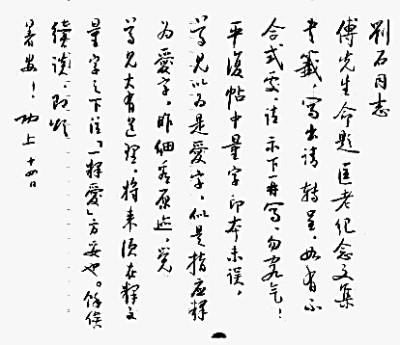 劉石同志
傅先生命题匡老纪念文集
书籤，写出请转呈，如有不
合式处，请示下再写，勿客气！
平復帖中量字印本未误，
尊兄以为是愛字，似是指应释
为愛字，昨细看原迹，觉
尊兄大有道理，将来须在释文
量字之下注「一释愛」方妥也。馀俟
续谈，即颂
著安！功上 十四日